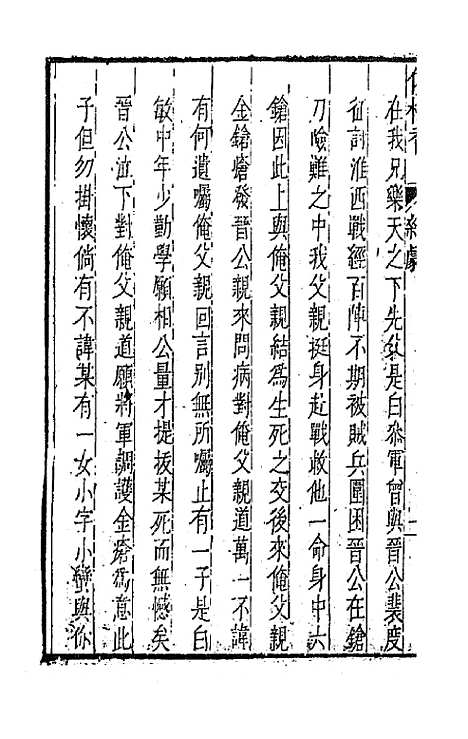 在我兄樂天之下先父是白叅軍曾與晉公裴度
征討淮西戰經百陣不期被賊兵圍困晉公在鎗
刀險難之中我父親挺身赴戰救他一命身中六
鎗因此上與俺父親結爲生死之交後來俺父親
金鎗瘡發晉公親來問病對俺父親道萬一不諱
有何遺囑俺父親回言别無所囑止有一子是白
敏中年少勤學願相公量才提拔某死而無憾矣
晉公泣下對俺父親道願將軍調護金瘡爲意此
子但勿掛懷倘有不諱某有一女小字小蠻與你